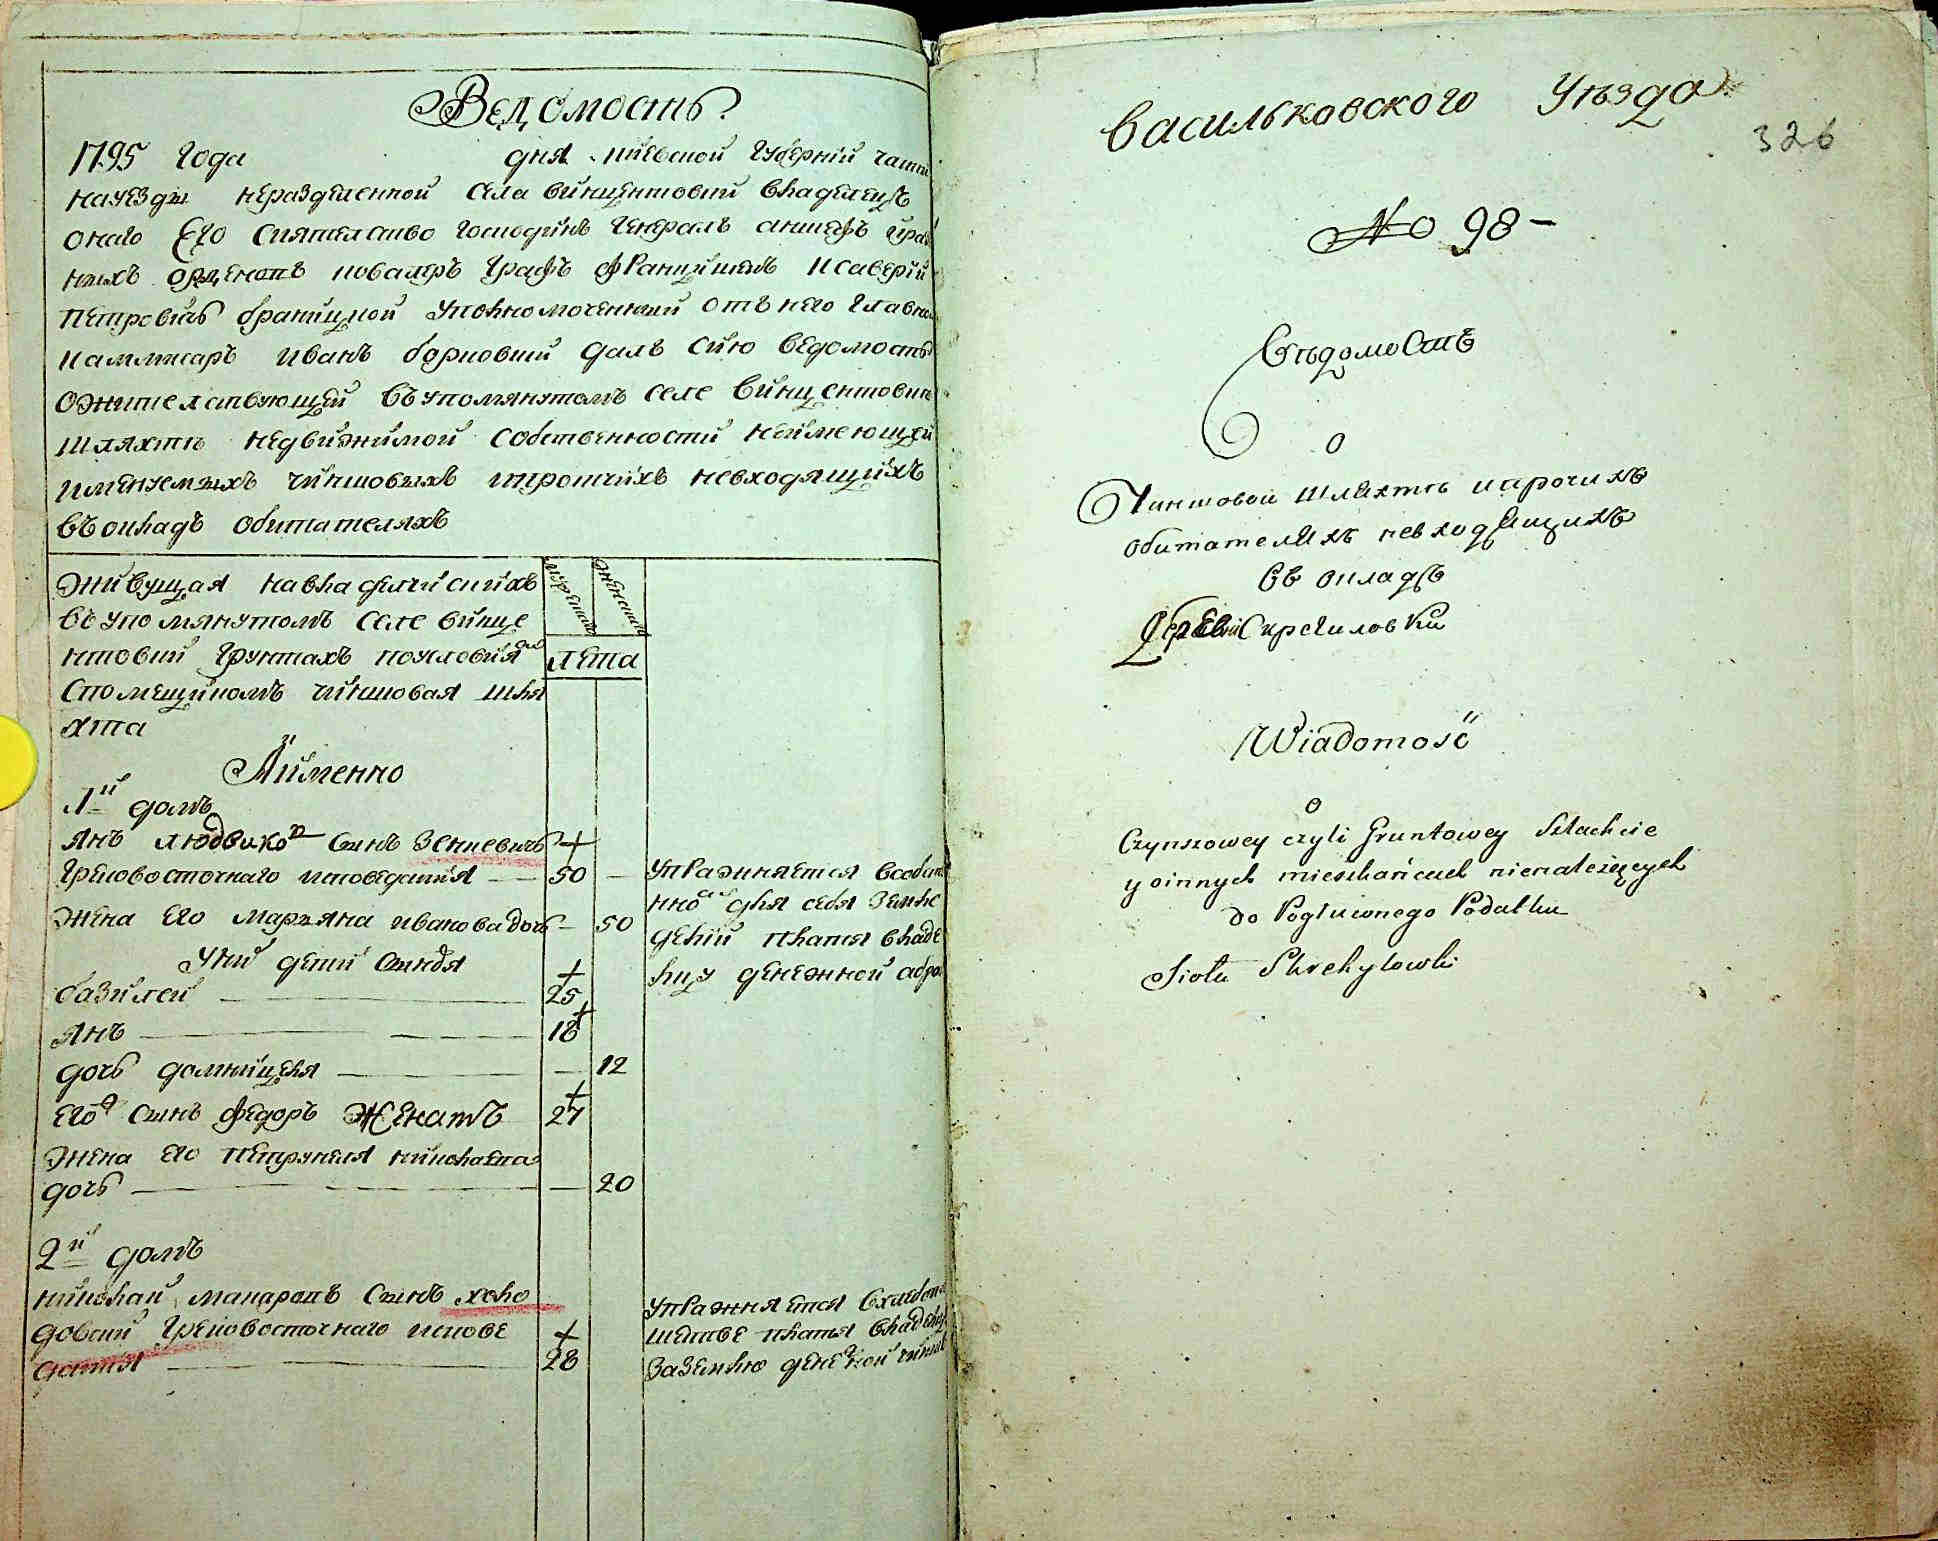 Ведомость
1795 года дня киевской губернии части
науезды неразделенной села винцентовки владелецъ
онаго Его Сиятелство Господинъ Генералъ аншефъ
ныхъ орденовъ кавалеръ Графъ Францишекъ Ксаверий
Петровичъ браницкой уполномоченный отъ него главно
каммисаръ иванъ борковский далъ сию ведомость
ожителствующей въ упомянутомъ селе винцентовки
шляхте недвижимой собственности неимеющей
именуемыхъ чиншовыхъ ипротчихъ невходящихъ
въ окладъ обитателяхъ
Живущая навладелчискихъ
въ упомянутомъ селе винце
нтовки грунтахъ поусловия
Спомещикомъ чиншовая шля
хта
мужеска
женска
лета
Аименно
1й домъ
янъ людвиковъ сынъ Зенкевичъ +
Грековосточнаго исповедания — 50 —
жена его марьяна иванова дочь — 50
Упражняется
для себя земле
делии платя владе
лцу денежной
Уних детей сыновя
базилей — + 25
янъ — 18 +
дочь домницеля — 12
его сынъ федоръ Женатъ + 27
жена его петрунеля николаева
дочь — 20
2й домъ
николай макаровъ сынъ холо
довский грековосточнаго испове +
дания — 28
Упражняется вхлебопа
шестве платя владелцу
заземлю денежной чиншъ
васильковского Уѣзда
326
№ 98 –
Вѣдомость
О
Чиншовой шляхтѣ ипрочихъ
обитателяхъ невходящихъ
въ окладъ
Скребиловки
Wiadomość
o
Czynszowey czyli Gruntowey Szlachcie
y innych mieszkańcach nienależących
do Pogłuwnego Podatku
Sioła Skrehylowki